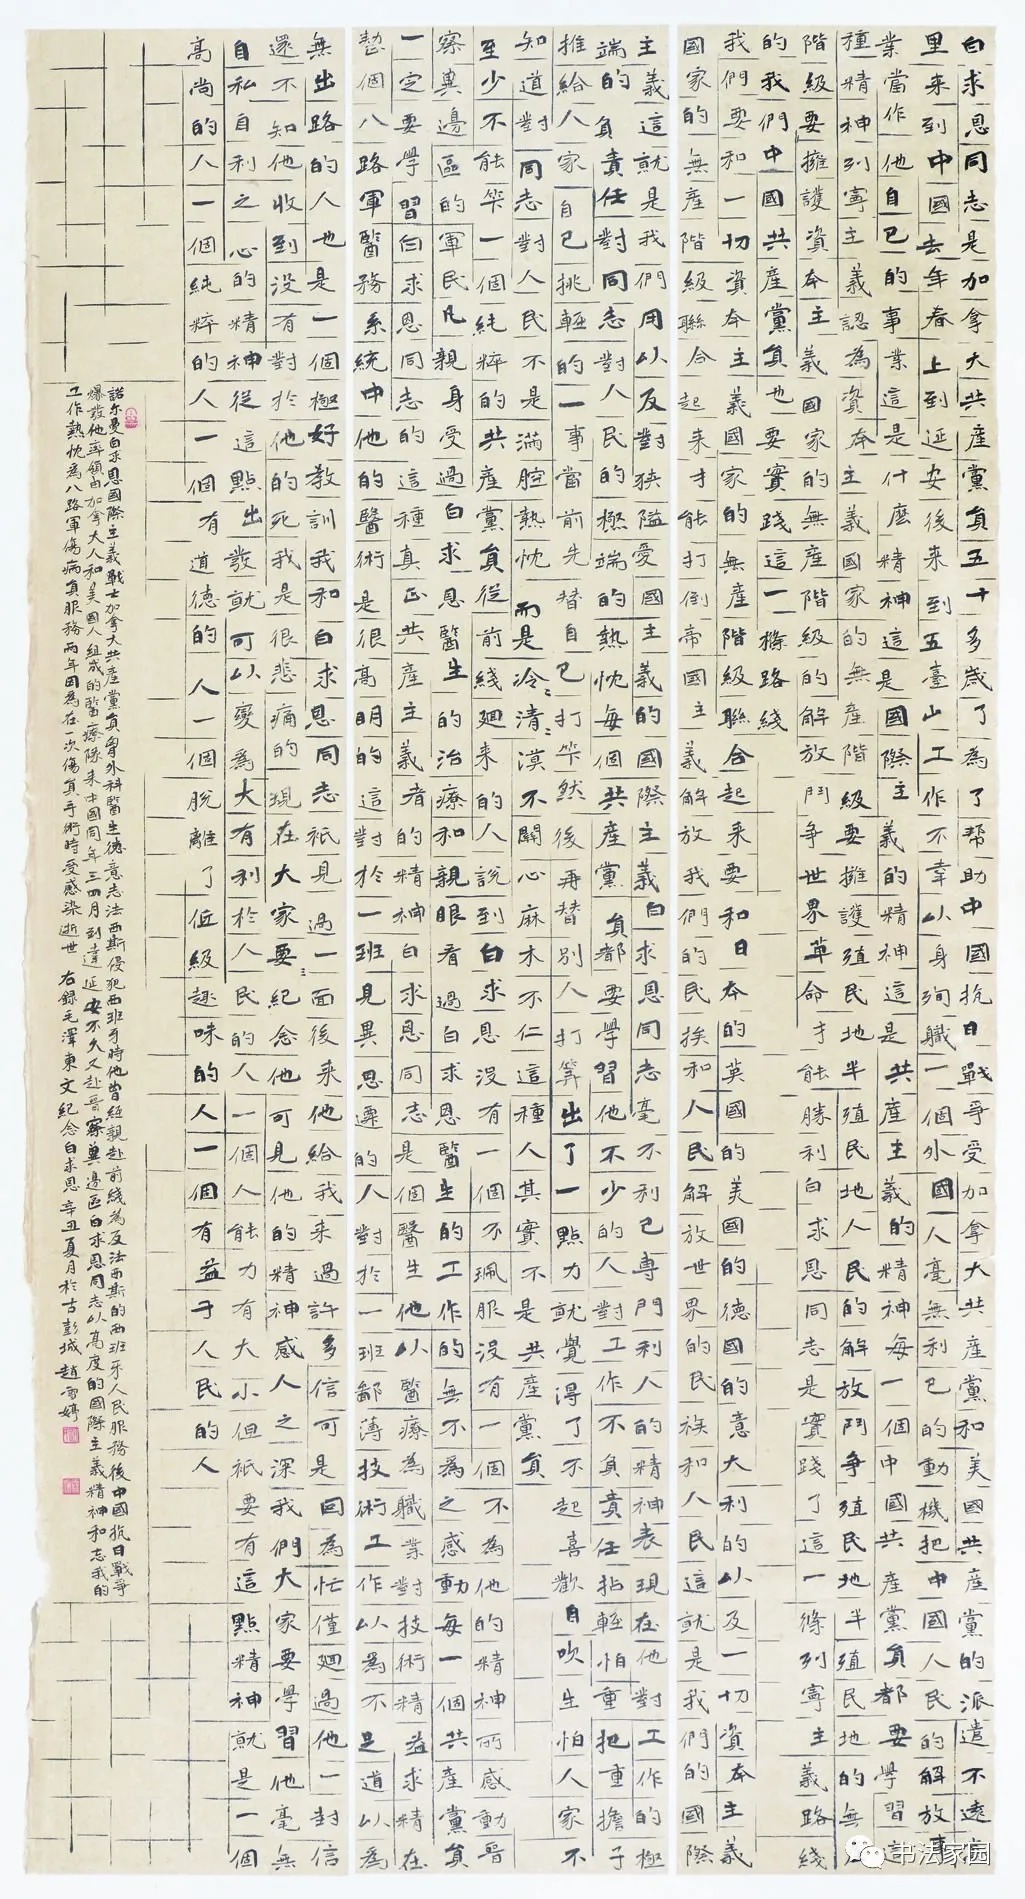 白求恩同志是加拿大共產黨員五十多歲了為了幫助中國抗日戰爭受加拿大共產黨和美國共產黨的派遣不遠
里来到中國去年春上到延安後来到五臺山工作不幸以身殉職一個外國人毫無利己的動機把中國人民的解放事
業當作他自己的事業這是什麽精神這是國際主義的精神這是共產主義的精神每一個中國共產黨員都要學習這
種精神列寧主義認為資本主義國家的無產階級要擁護殖民地半殖民地人民的解放鬥争殖民地半殖民地的無
階級要擁護資本主義國家的無產階級的解放鬥争世界革命才能勝利白求恩同志是實踐了這一條列寧主義路綫
的我們中國共產黨員也要實踐這一條路綫
我們要和一切資本主義國家的無產階級聯合起来要和日本的英國的美國的德國的意大利的以及一切資本主義
國家的無產階級聯合起来才能打倒帝國主義解放我們的民挨和人民解放世界的民族和人民這就是我們的國際
主義這就是我們用以反對狹隘愛國主義的國際主義白求恩同志毫不利己專門利人的精神表現在他對工作的極
端的負責任對同志對人民的極端的熱忱每個共產黨員都要學習他不少的人對工作不負責任拈輕怕重把重擔子
推給人家自己挑輕的一事當前先替自己打笇然後再替別人打算出了一點力就覺得了不起喜歡自吹生怕人家不
知道對同志對人民不是滿腔熱忱而是冷〻清〻漠不關心麻木不仁這種人其實不是共產黨員
至少不能笇一個純粹的共產黨員從前綫廻来的人說到白求恩没有一個不珮服没有一個不為他的精神所感動晉
察冀邊區的軍民凡親身受過白求恩醫生的治療和親眼看過白求恩醫生的工作的無不為之感動每一個共產黨員
一定要學習白求恩同志的這種真正共產主義者的精神白求恩同志是個醫生他以醫療為職業對技術精益求精在
整個八路軍醫務系統中他的醫術是很高明的這對於一班見異思遷的人對於一班鄙薄技術工作以為不足道以為
無出路的人也是一個極好教訓我和白求恩同志衹見過一面後来他給我来過許多信可是因為忙僅廻過他一封信
還不知他收到没有對於他的死我是很悲痛的現在大家要〻紀念他可見他的精神感人之深我們大家要學習他毫無
自私自利之心的精神從這點出發就可以變為大有利於人民的人一個人能力有大小但衹要有這點精神就是一個
高尚的人一個純粹的人一個有道德的人一個脱離了低級趣味的人一個有益于人民的人
諾尔曼白求恩國際主義戰士加拿大共產黨員曾外科醫生德意志法西斯侵犯西班牙時他曾經親赴前綫為反法西斯的西班牙人民服務後中國抗日戰爭
爆發他率領由加拿大人和美國人組成的醫療隊来中國同年三四月到達延安不久又赴晉察冀邊區白求恩同志以高度的國際主義精神和忘我的
工作熱忱為八路軍傷病員服務兩年因為在一次傷員手術時受感染逝世 右録毛澤東文紀念白求恩辛丑夏月於古彭城 趙雪婷
书法家园